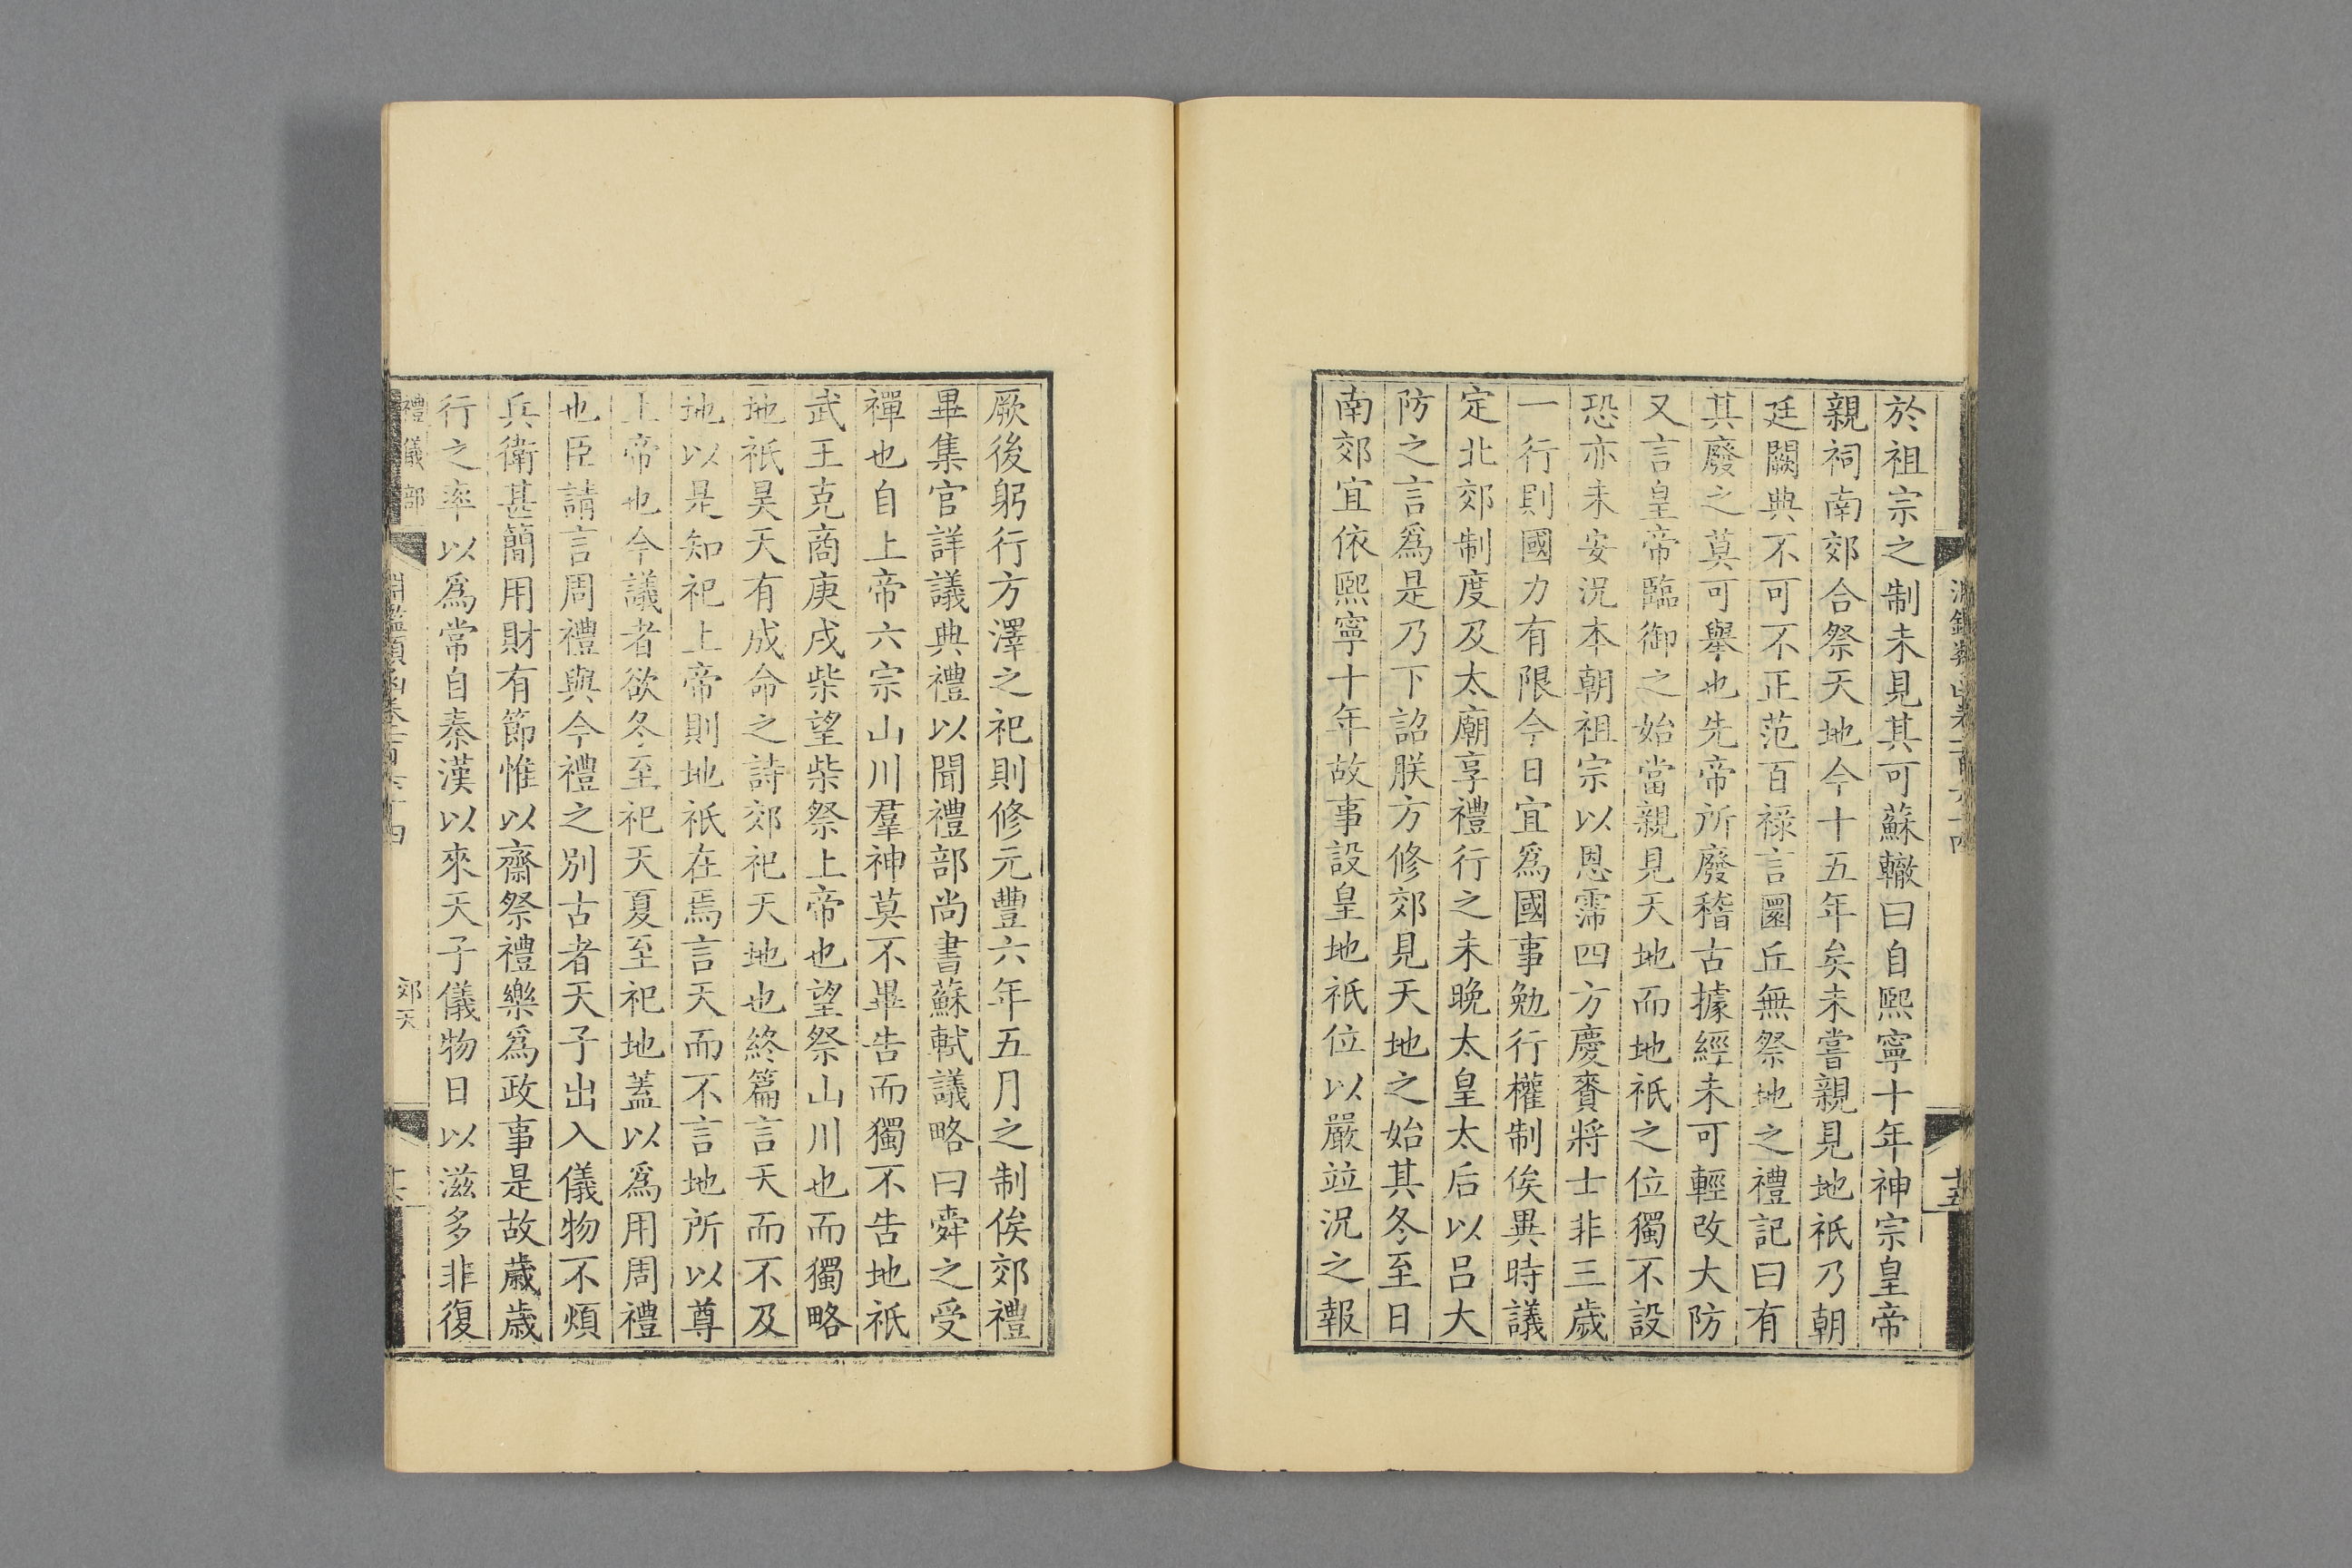 於祖宗之制未見其可蘇轍曰自熙寧十年神宗皇帝
親祠南郊合祭天地今十五年矣未嘗親見地祇乃朝
廷闕典不可不正范百祿言圜丘無祭地之禮記曰有
其廢之莫可舉也先帝所廢稽古據經未可輕改大防
又言皇帝臨御之始當親見天地而地祇之位獨不設
恐亦未安況本朝祖宗以恩霈四方慶賚將士非三歲
一行則國力有限今日宜爲國事勉行權制俟異時議
定北郊制度及太廟享禮行之未晚太皇太后以呂大
防之言爲是乃下詔朕方修郊見天地之始其冬至日
南郊宜依熙寧十年故事設皇地祇位以嚴竝況之報
厥後躬行方澤之祀則修元豐六年五月之制俟郊禮
畢集官詳議典禮以聞禮部尚書蘇軾議略曰舜之受
禪也自上帝六宗山川羣神莫不畢告而獨不告地祇
武王克商庚戌柴望柴祭上帝也望祭山川也而獨略
地祇昊天有成命之詩郊祀天地也終篇言天而不及
地以是知祀上帝則地祇在焉言天而不言地所以尊
上帝也今議者欲冬至祀天夏至祀地蓋以爲用周禮
也臣請言周禮與今禮之別古者天子出入儀物不煩
兵衛甚簡用財有節惟以齋祭禮樂爲政事是故歲歲
行之率以爲常自秦漢以來天子儀物日以滋多非復
禮儀部
淵鑑類函卷一百六十四
郊天